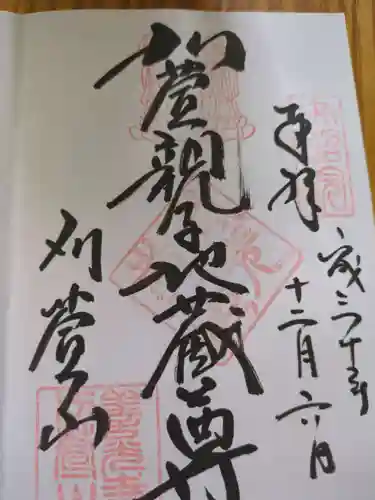 奉拝
平成三十年
十二月六日
刈萱親子地蔵尊
刈萱山